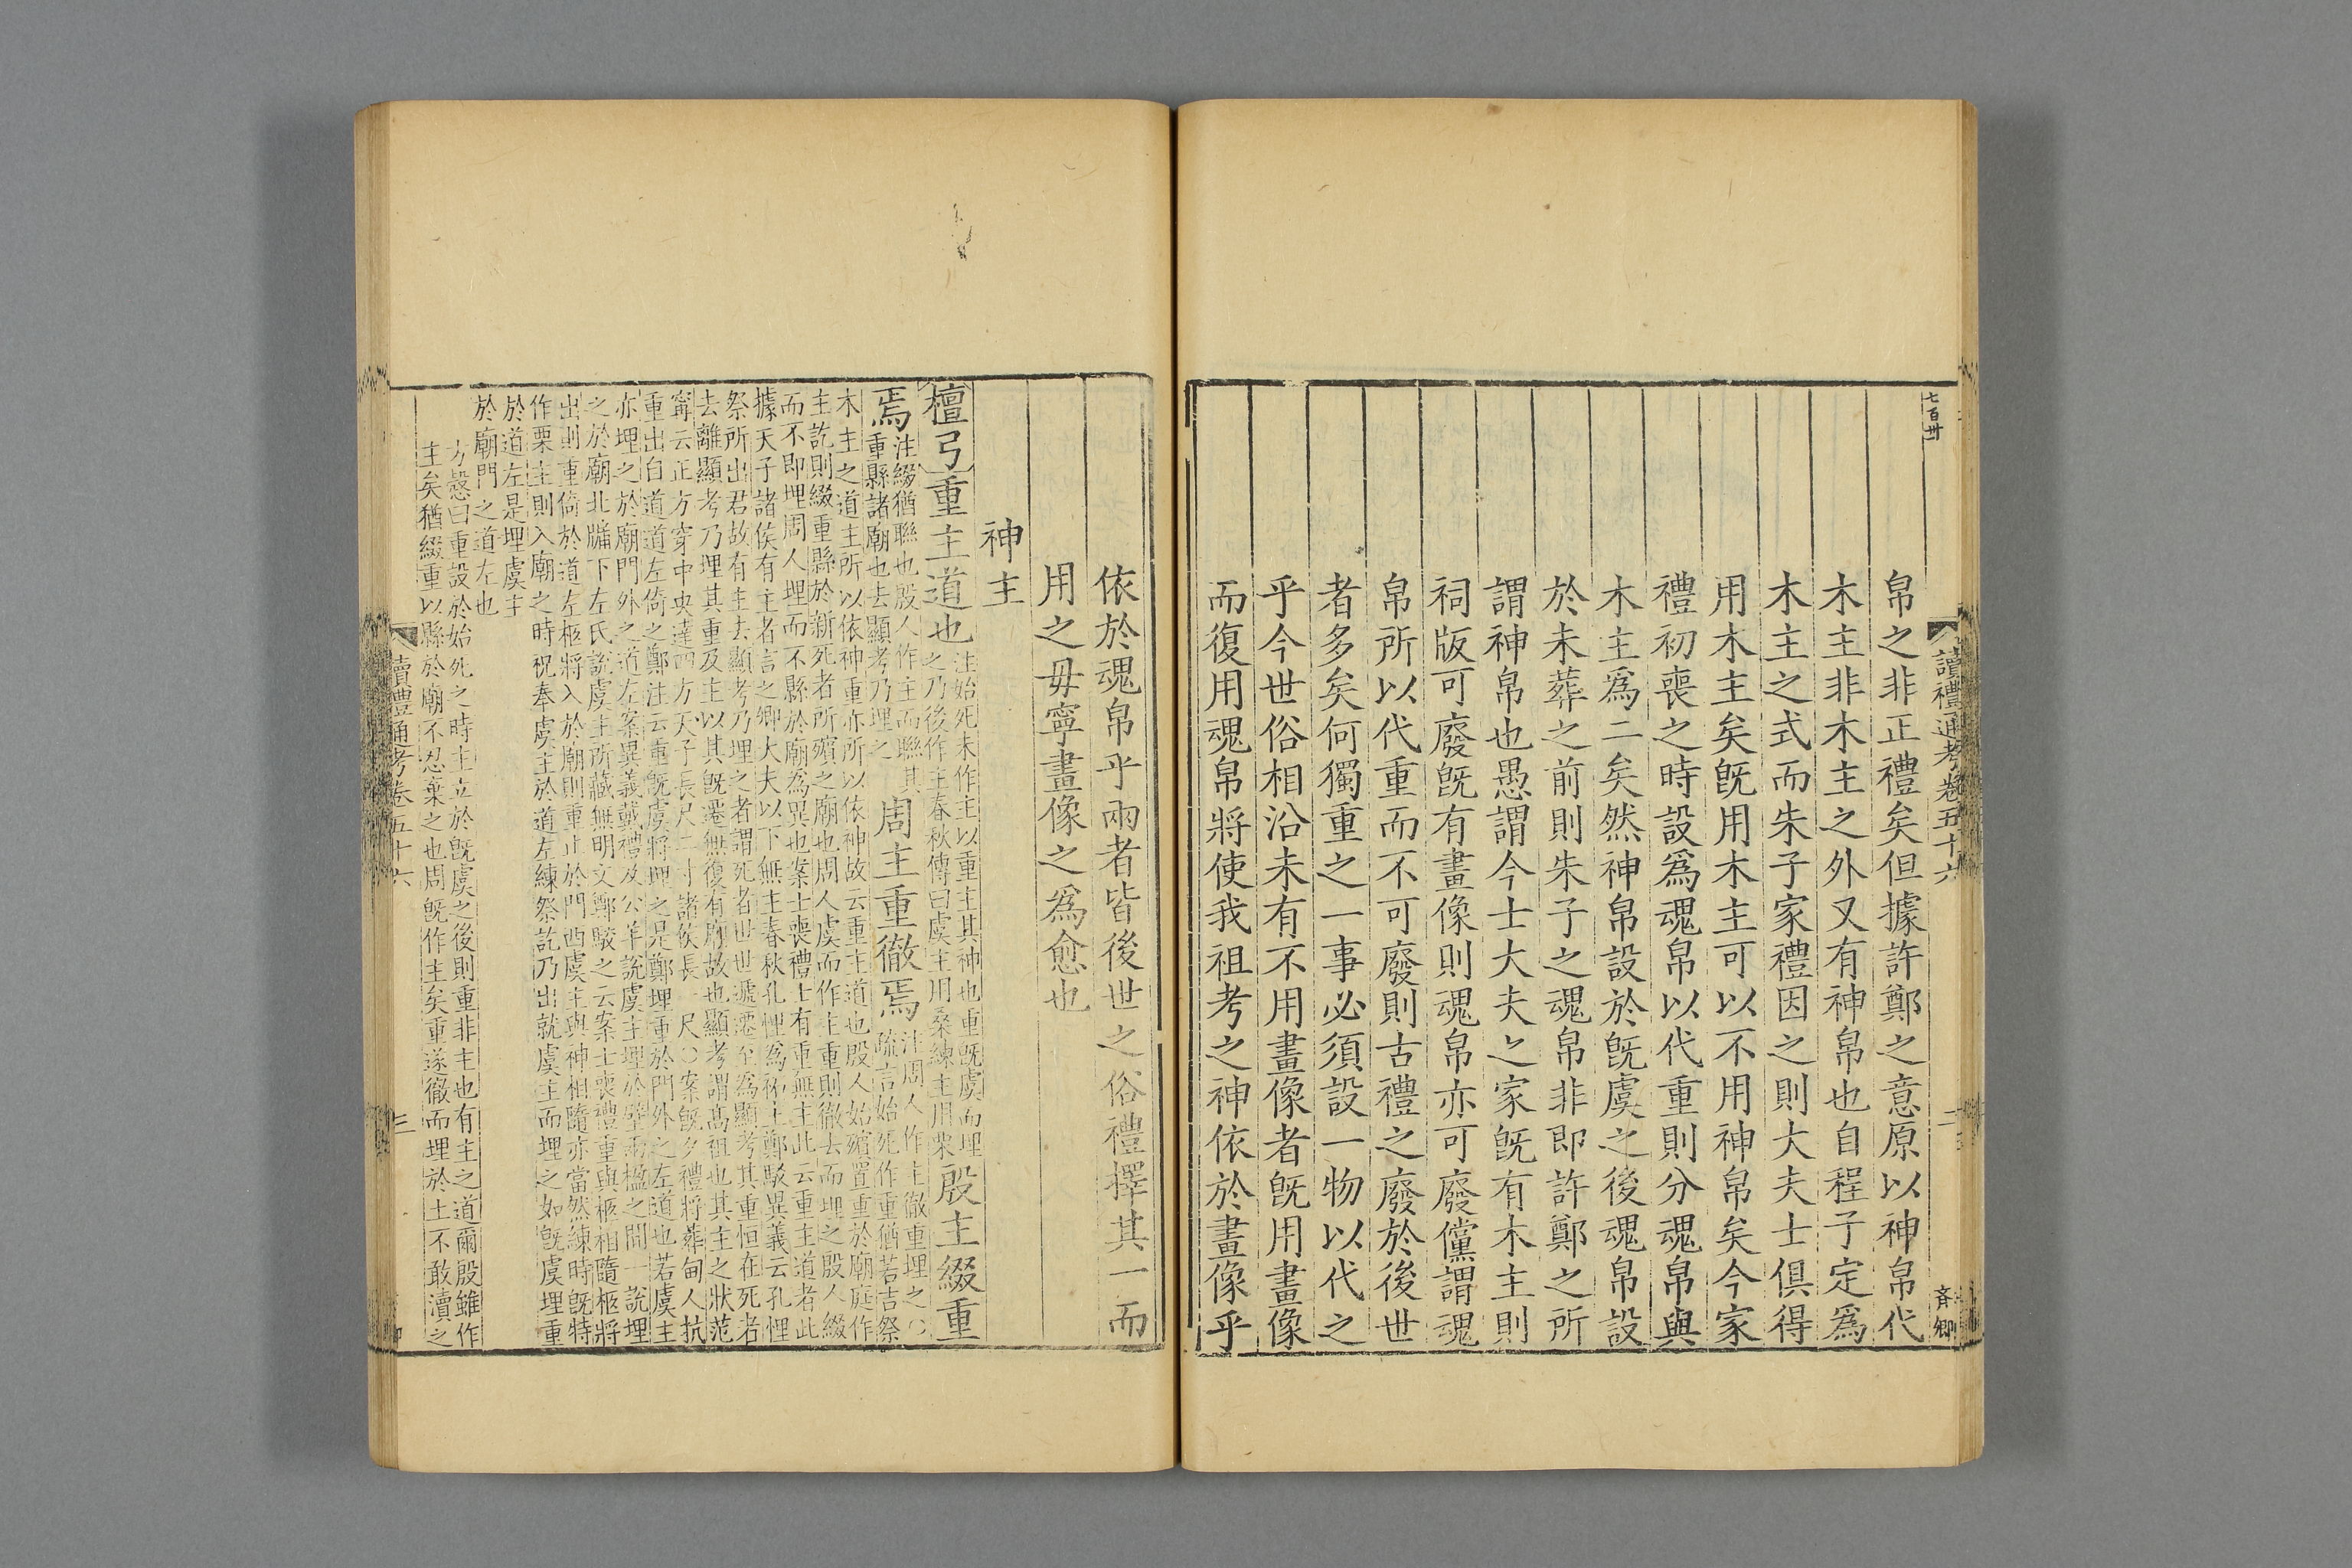 七百卅
讀禮通考卷五十六
二
帛之非正禮矣但據許鄭之意原以神帛代
木主非木主之外又有神帛也自程子定爲
木主之式而朱子家禮因之則大夫士俱得
用木主矣旣用木主可以不用神帛矣今家
禮初喪之時設爲魂帛以代重則分魂帛與
木主爲二矣然神帛設於旣虞之後魂帛設
於未葬之前則朱子之魂帛非即許鄭之所
謂神帛也愚謂今士大夫之家旣有木主則
祠版可廢旣有畫像則魂帛亦可廢儻謂魂
帛所以代重而不可廢則古禮之廢於後世
者多矣何獨重之一事必須設一物以代之
乎今世俗相沿未有不用畫像者旣用畫像
而復用魂帛將使我祖考之神依於畫像乎
依於魂帛乎兩者皆後世之俗禮擇其一而
用之毋寧畫像之爲愈也
神主
檀弓重主道也
注始死未作主以重主其神也重旣虞而埋
之乃後作主春秋傳曰虞主用桑練主用栗
殷主綴重
焉
注綴猶聯也殷人作主而聯其
重縣諸廟也去顯考乃埋之
周主重徹焉
注周人作主徹重埋之〇
疏言始死作重猶若吉祭
木主之道主所以依神重亦所以依神故云重主道也殷人始殯置重於廟庭作
主訖則綴重縣於新死者所殯之廟也周人虞而作主重則徹去而埋之殷人綴
而不即埋周人埋而不縣於廟爲異也案士喪禮士有重無主此云重主道者此
據天子諸侯有主者言之卿大夫以下無主春秋孔悝爲祏主鄭駁異義云孔悝
祭所出君故有主去顯考乃埋之者謂死者世世遞遷至爲顯考其重恒在死者
去離顯考乃埋其重及主以其旣遷無復有廟故也顯考謂高祖也其主之狀范
甯云正方穿中央達四方天子長尺二寸諸侯長一尺〇案旣夕禮將葬甸人抗
重出自道道左倚之鄭注云重旣虞將埋之是鄭埋重於門外之左道也若虞主
亦埋之於廟門外之道左案異義戴禮及公羊說虞主埋於壁兩楹之間一說埋
之於廟北牖下左氏說虞主所藏無明文鄭駁之云案士喪禮重與柩相隨柩將
出則重倚於道左柩將入於廟則重止於門西虞主與神相隨亦當然練時旣特
作栗主則入廟之時祝奉虞主於道左練祭訖乃出就虞主而埋之如旣虞埋重
於道左是埋虞主
於廟門之道左也
方慤曰重設於始死之時主立於旣虞之後則重非主也有主之道爾殷雖作
主矣猶綴重以縣於廟不忍棄之也周旣作主矣重遂徹而埋於土不敢瀆之
讀禮通考卷五十六
三